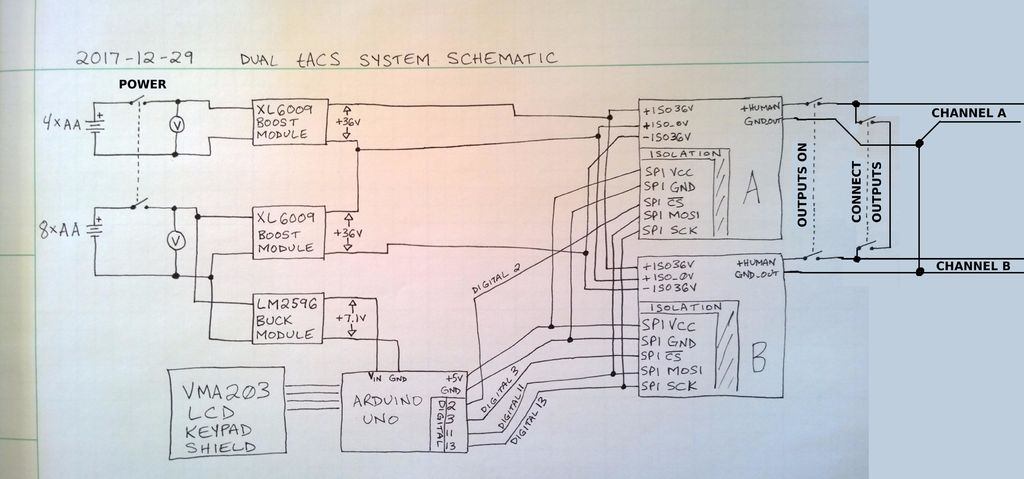 2017-12-29 DUAL tACS SYSTEM SCHEMATIC
POWER
4xAA
+
V
XL6009
BOOST
MODULE
+36V
8xAA
+
V
XL6009
BOOST
MODULE
+36V
LM2596
BUCK
MODULE
+7.1V
VMA203
LCD
KEYPAD
SHIELD
VIN GND
+5V
GND
ARDUINO
UNO
DIGITAL
2
3
11
13
DIGITAL 2
DIGITAL 3
DIGITAL 11
DIGITAL 13
+ISO36V
+ISO_0V
-ISO36V
+HUMAN
GND_OUT
ISOLATION
SPI VCC
SPI GND
SPI CS
SPI MOSI
SPI SCK
A
+ISO36V
+ISO_0V
-ISO36V
+HUMAN
GND_OUT
ISOLATION
SPI VCC
SPI GND
SPI CS
SPI MOSI
SPI SCK
B
OUTPUTS ON
CONNECT
OUTPUTS
CHANNEL A
CHANNEL B